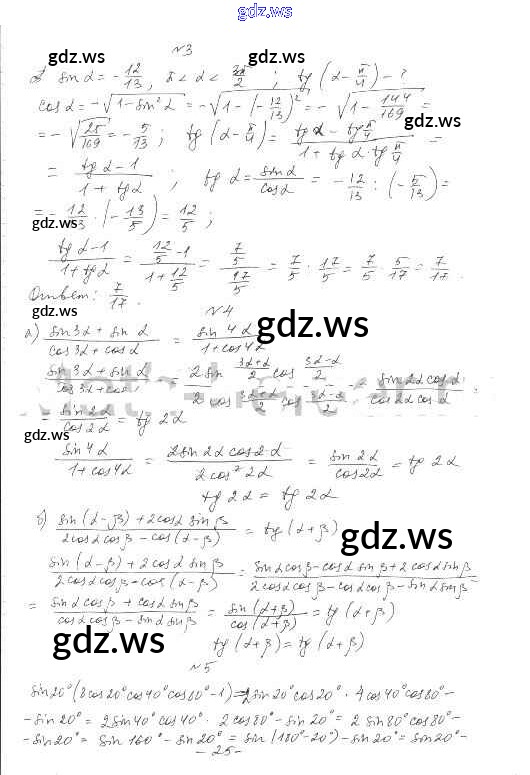 gdz.ws
№3
gdz.ws gdz.ws
sin α = -12/13, π < α < 3π/2; tg(α - π/4) - ?
cos α = -√(1 - sin² α) = -√(1 - (-12/13)²) = -√(1 - 144/169) =
= -√(25/169) = -5/13; tg(α - π/4) = (tg α - tg π/4)/(1 + tg α · tg π/4) =
= (tg α - 1)/(1 + tg α); tg α = sin α/cos α = -12/13 : (-5/13) =
gdz.ws gdz.ws
= -12/13 · (-13/5) = 12/5;
(tg α - 1)/(1 + tg α) = (12/5 - 1)/(1 + 12/5) = (7/5)/(17/5) = 7/5 : 17/5 = 7/5 · 5/17 = 7/17.
Ответ: 7/17.
gdz.ws
№4
gdz.ws
а) (sin 3α + sin α)/(cos 3α + cos α) = sin 4α/(1 + cos 4α)
(sin 3α + sin α)/(cos 3α + cos α) = (2 sin (3α+α)/2 cos (3α-α)/2)/(2 cos (3α+α)/2 cos (3α-α)/2) = (sin 2α cos α)/(cos 2α cos α) =
= sin 2α/cos 2α = tg 2α
gdz.ws
sin 4α/(1 + cos 4α) = (2 sin 2α cos 2α)/(2 cos² 2α) = sin 2α/cos 2α = tg 2α
tg 2α = tg 2α
б) (sin(α-β) + 2cos α sin β)/(2cos α cos β - cos(α-β)) = tg(α+β)
gdz.ws
(sin(α-β) + 2cos α sin β)/(2cos α cos β - cos(α-β)) = (sin α cos β - cos α sin β + 2 cos α sin β)/(2cos α cos β - cos α cos β - sin α sin β) =
= (sin α cos β + cos α sin β)/(cos α cos β - sin α sin β) = sin(α+β)/cos(α+β) = tg(α+β)
gdz.ws gdz.ws
tg(α+β) = tg(α+β)
№5
sin 20°(8cos 20° cos 40° cos 80° - 1) = 2 sin 20° cos 20° · 4 cos 40° cos 80° -
- sin 20° = 2 sin 40° cos 40° · 2 cos 80° - sin 20° = 2 sin 80° cos 80° -
- sin 20° = sin 160° - sin 20° = sin(180° - 20°) - sin 20° = sin 20° -
- 25 -
gdz.ws gdz.ws